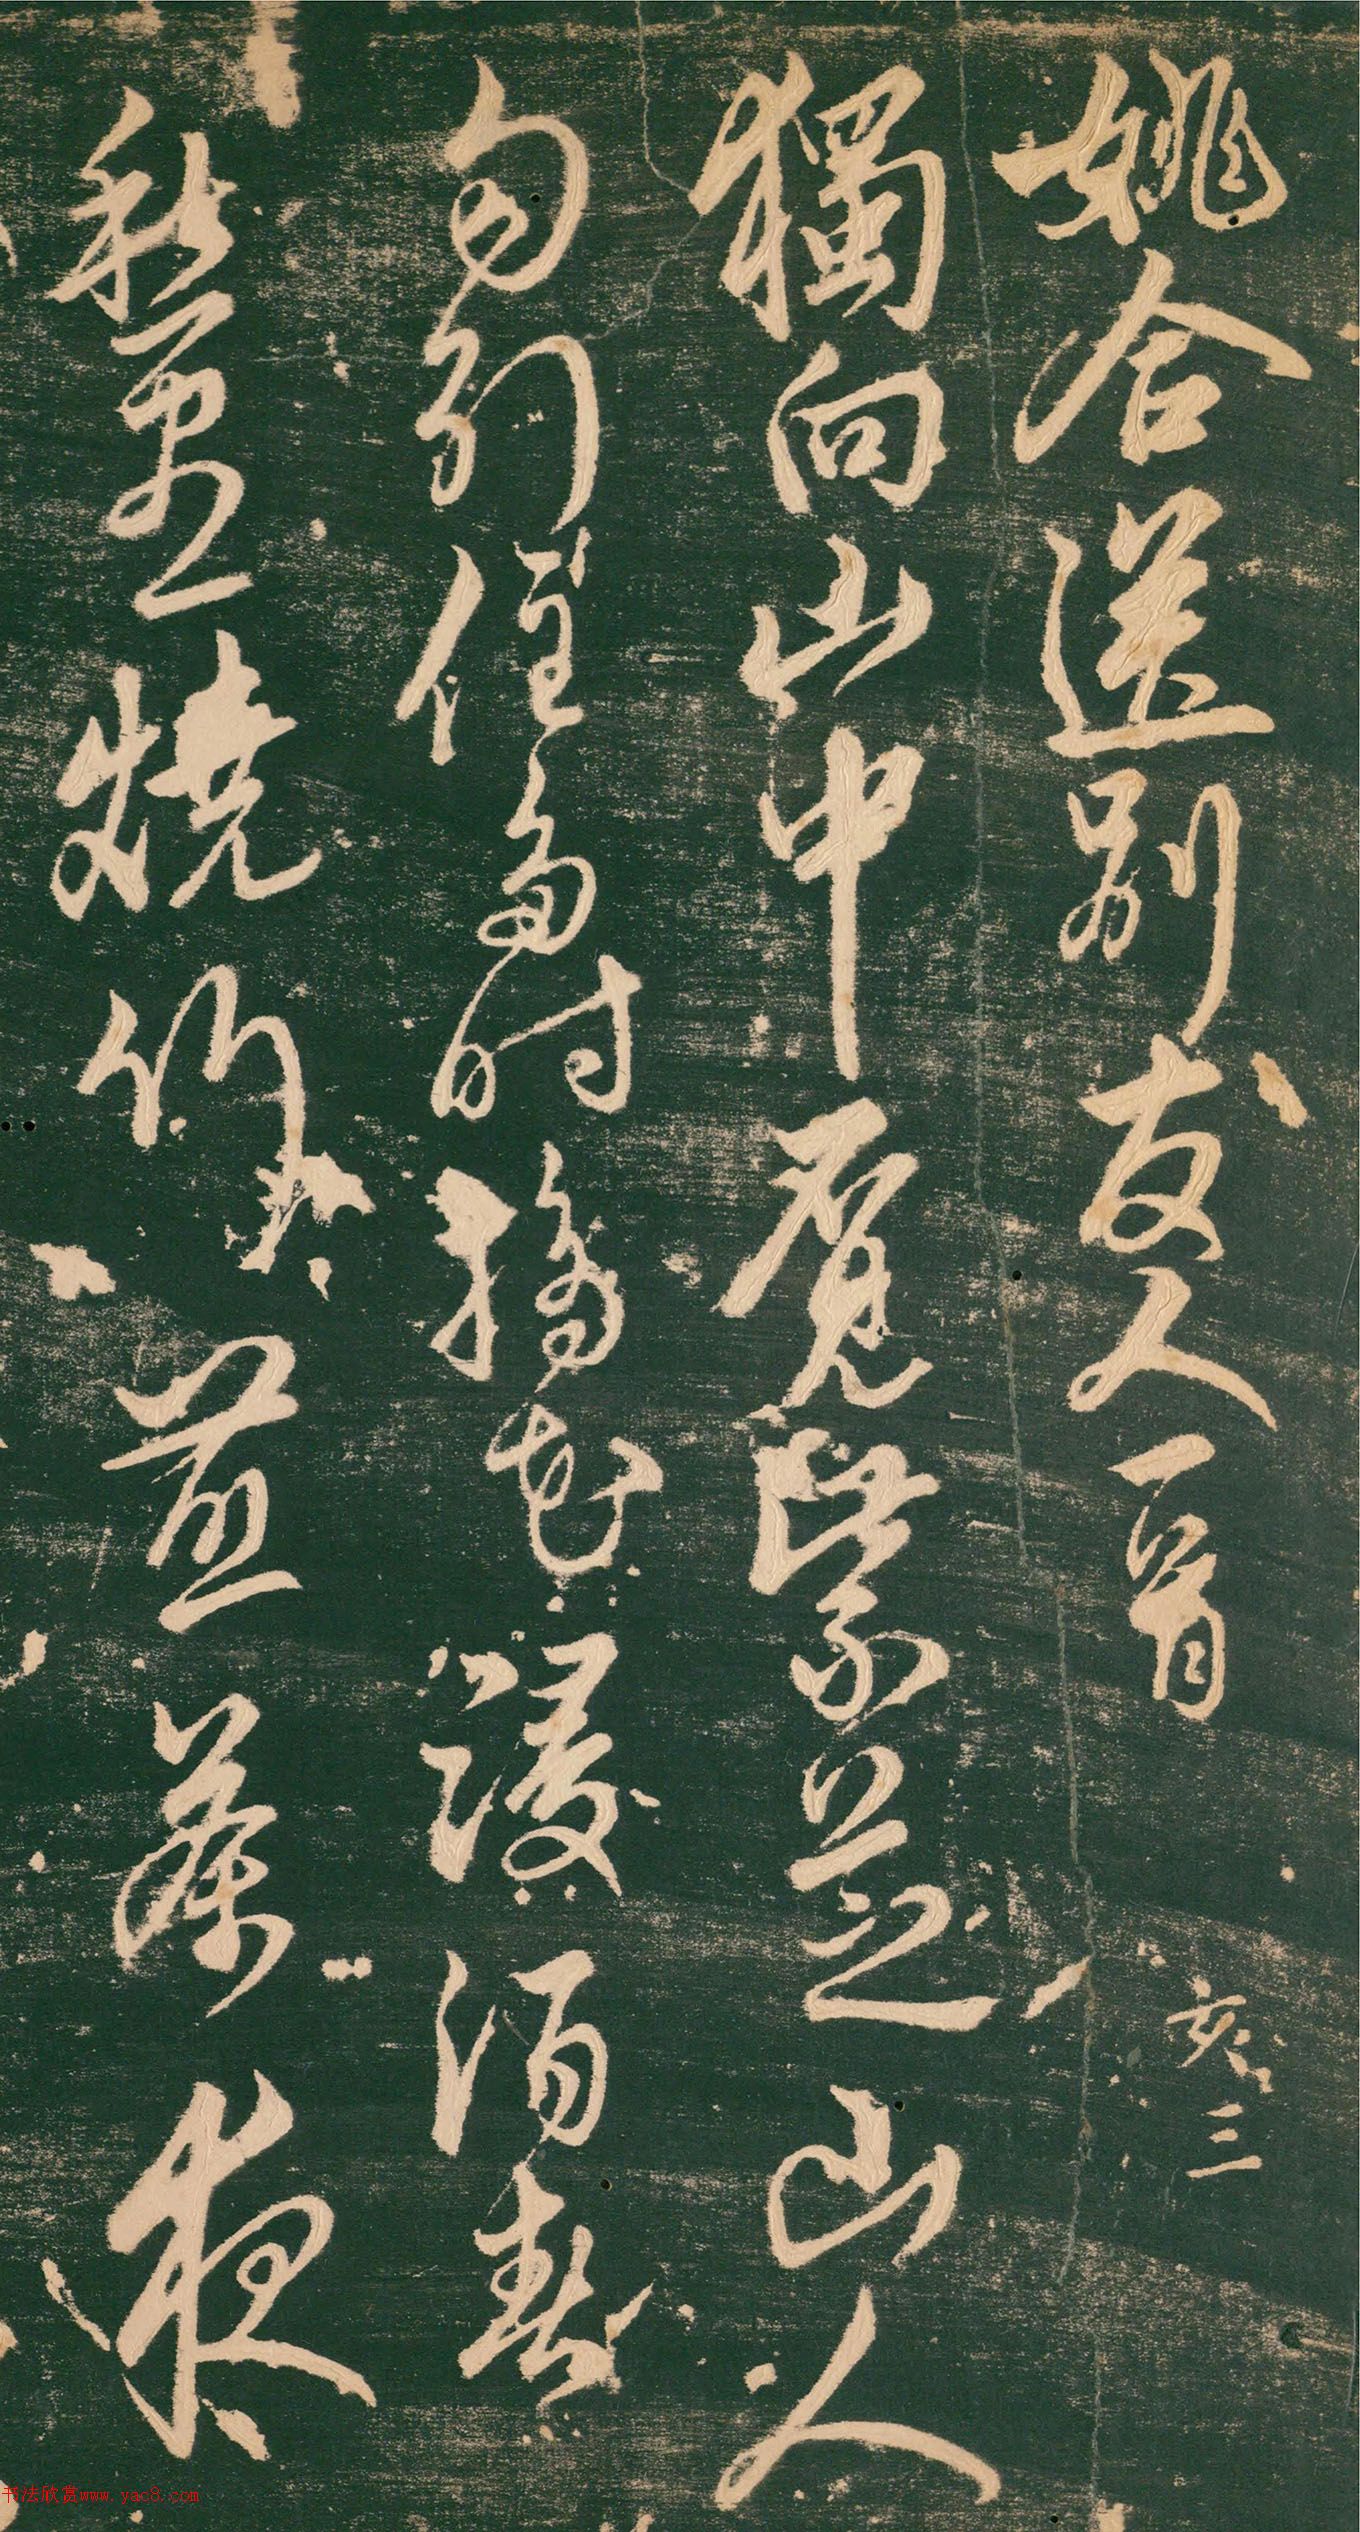 姚合送别友人一首
亥三
獨向山中覓紫芝山人
勾引住多時摘花浸酒春
愁盡燒竹煎茶夜
书法欣赏www.yac8.com